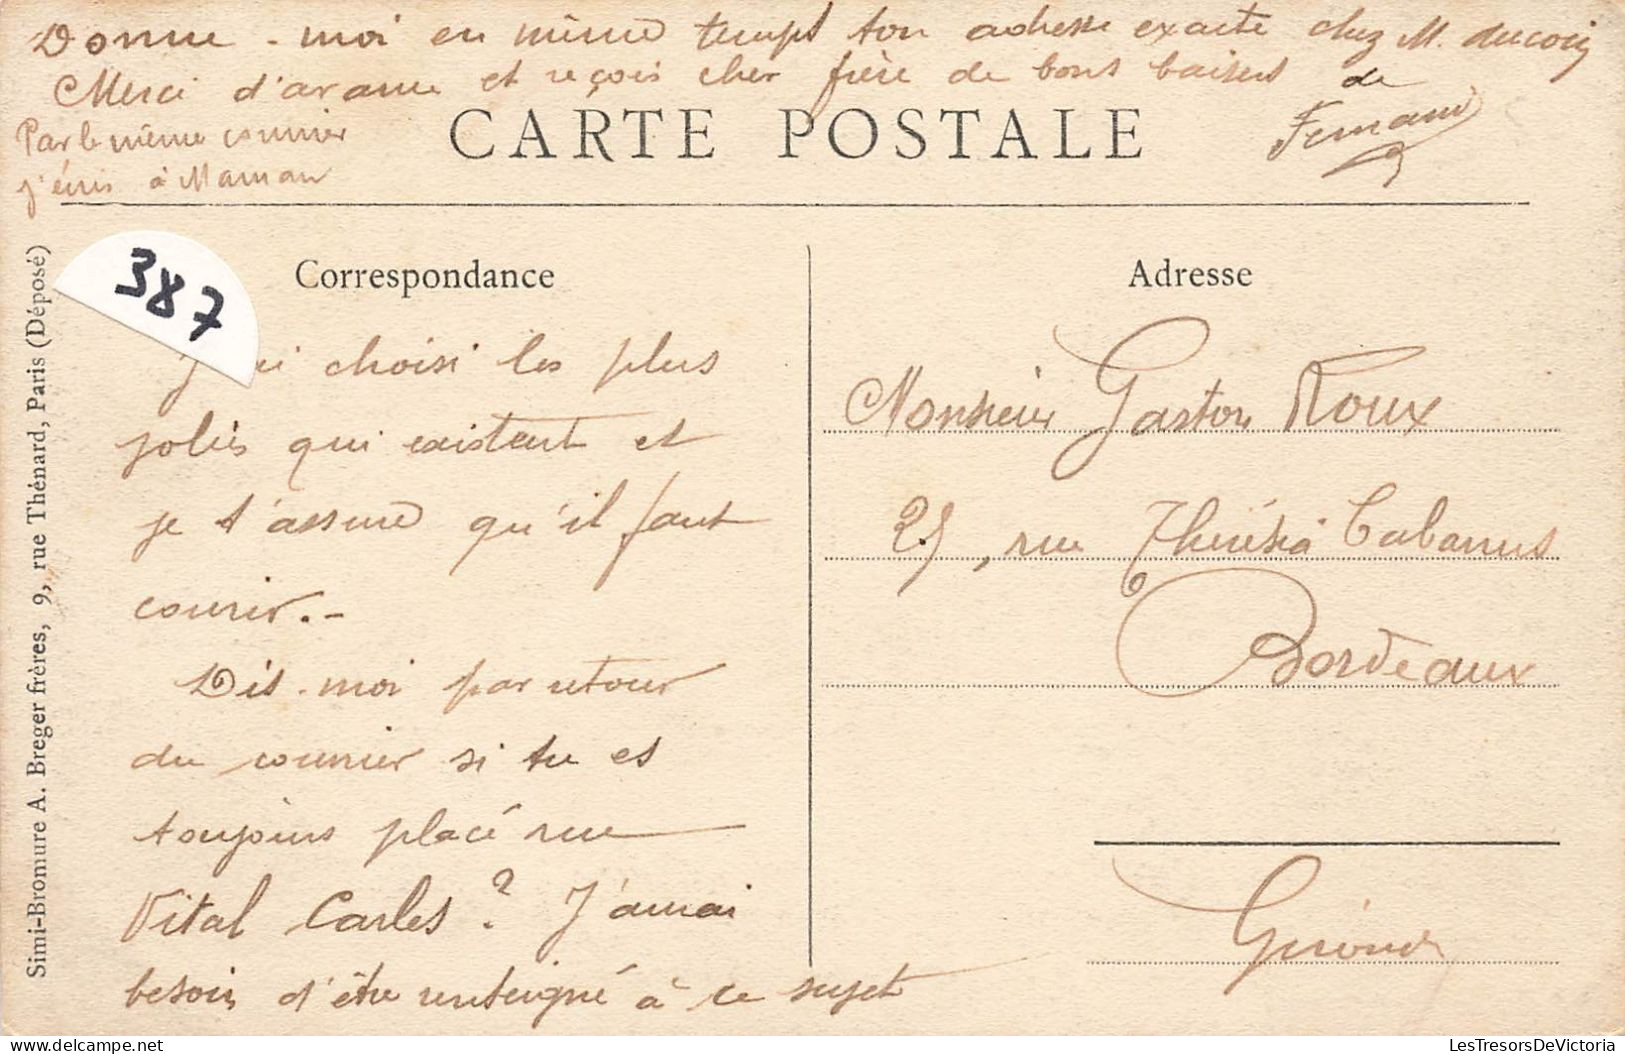 Donne-moi en même temps ton adresse exacte chez M.
Merci d'avance et reçois cher frère de bons baisers de
Fernand
Par le même courrier
j'écris à Maman
CARTE POSTALE
387
Correspondance
choisi les plus
jolies qui existent et
je t'assure qu'il faut
courir.-
Dis-moi par retour
du courrier si tu es
toujours placé rue
Vital Carles? J'aurai
besoin d'être renseigné à ce sujet
Adresse
Monsieur Gaston Roux
25, rue Thérésia Cabarrus
Bordeaux
Gironde
Simi-Bromure A. Breger frères, 9, rue Thénard, Paris (Déposé)
LesTresorsDeVictoria
delcampe.net